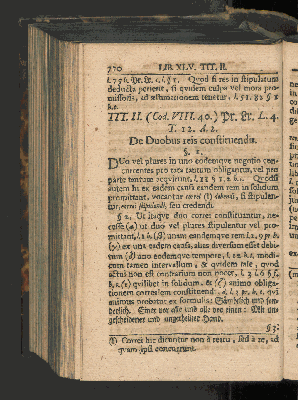 770 LIB. XLV. TIT. II.
l. 79 h. Pr. Er. c. l. § 1. Quod si res in stipulatum
deducta pereat, si quidem culpa vel mora pro-
missoris, ad æstimationem tenetur, l. 91. 82 § 1
h. t.
TIT. II. (Cod. VIII. 40.) Pr. Er. L. 4.
T. 12. A. 2.
De Duobus reis constituendis.
§. 1.
DUo vel plures in uno eodemque negotio con-
currentes pro rata tantum obligantur, vel pro
parte tantum acquirunt, Quodsi
autem in ex eadem causa eandem rem in solidum
promittant, vocantur correi debendi, si stipulan-
tur, correi stipulandi, seu credendi.
§ 2. Ut itaque duo correi constituantur, ne-
cesse (a) ut duo vel plures stipulentur vel pro-
mittant, (b) unam eandemque rem
(c) ex una eadem causa, alias diversum esset debi-
tum (d) uno eodemque tempore, modi-
cum tamen intervallum, & quidem
actus non est contrarium non nocet, l. 3 & 6 § 3.
h. t. (e) quilibet in solidum, & (f) animo obliga-
tionem correalem constituendi qui
animus probatur ex formula: Sämptlich und son-
derlich. Einer vor alle und alle vor einen: Mit un-
gescheidener und ungetheilter Hand.
§ 3.
(†) Correi hic dicuntur non à reatu, sed à re, ad
quam ipsi concurrunt.